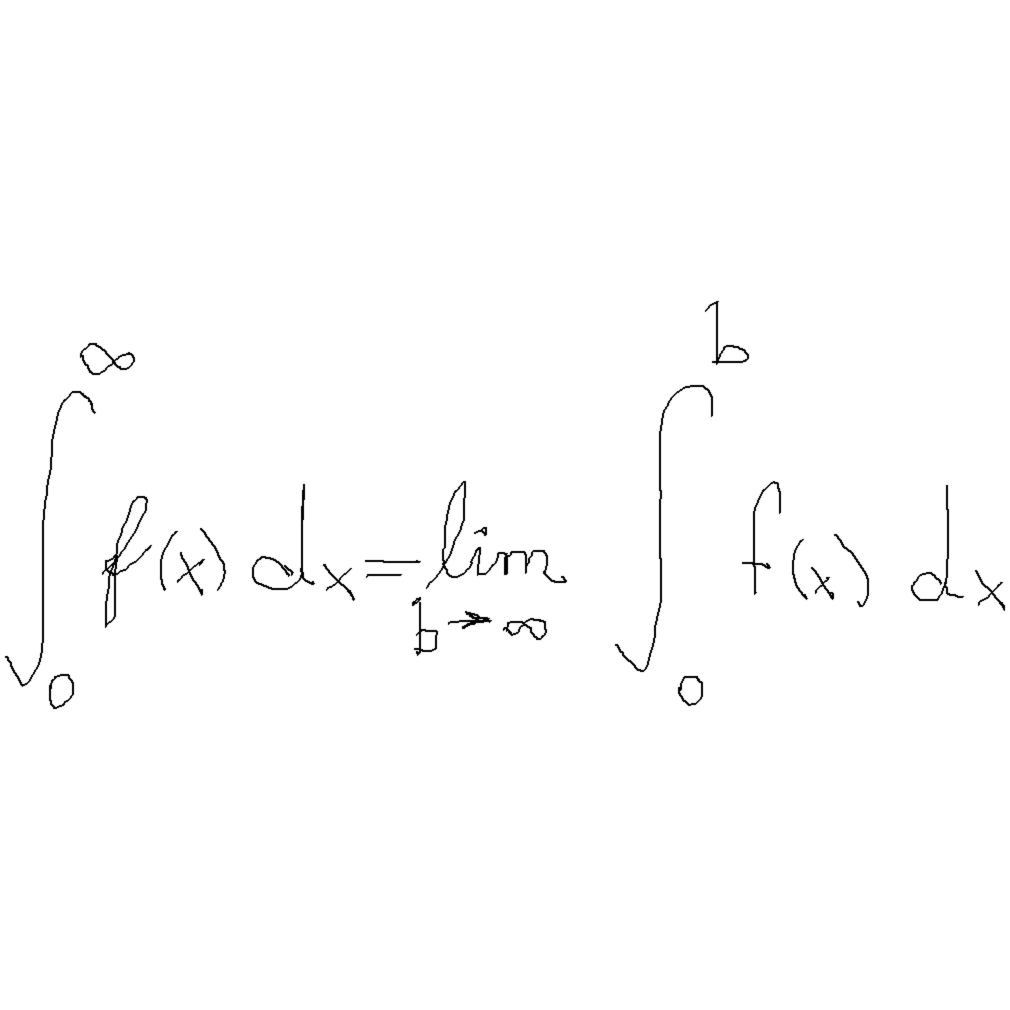 \int_0^\infty f(x) dx = \lim_{b \to \infty} \int_0^b f(x) dx